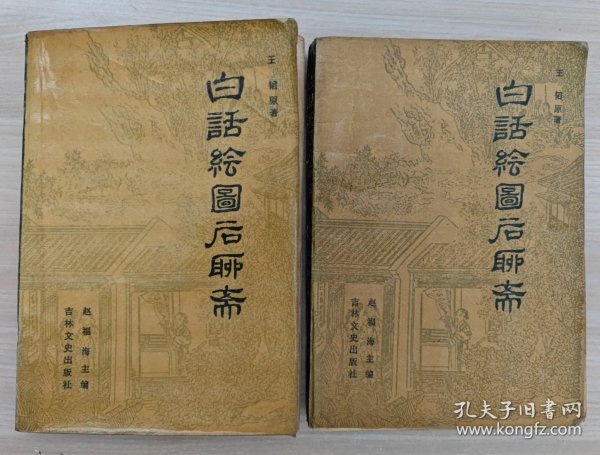 王韬原著
白話绘圖后聊斋
赵福海主编
吉林文史出版社
王韬原著
白話绘圖后聊斋
赵福海主编
吉林文史出版社
孔夫子旧书网
www.kongfz.com